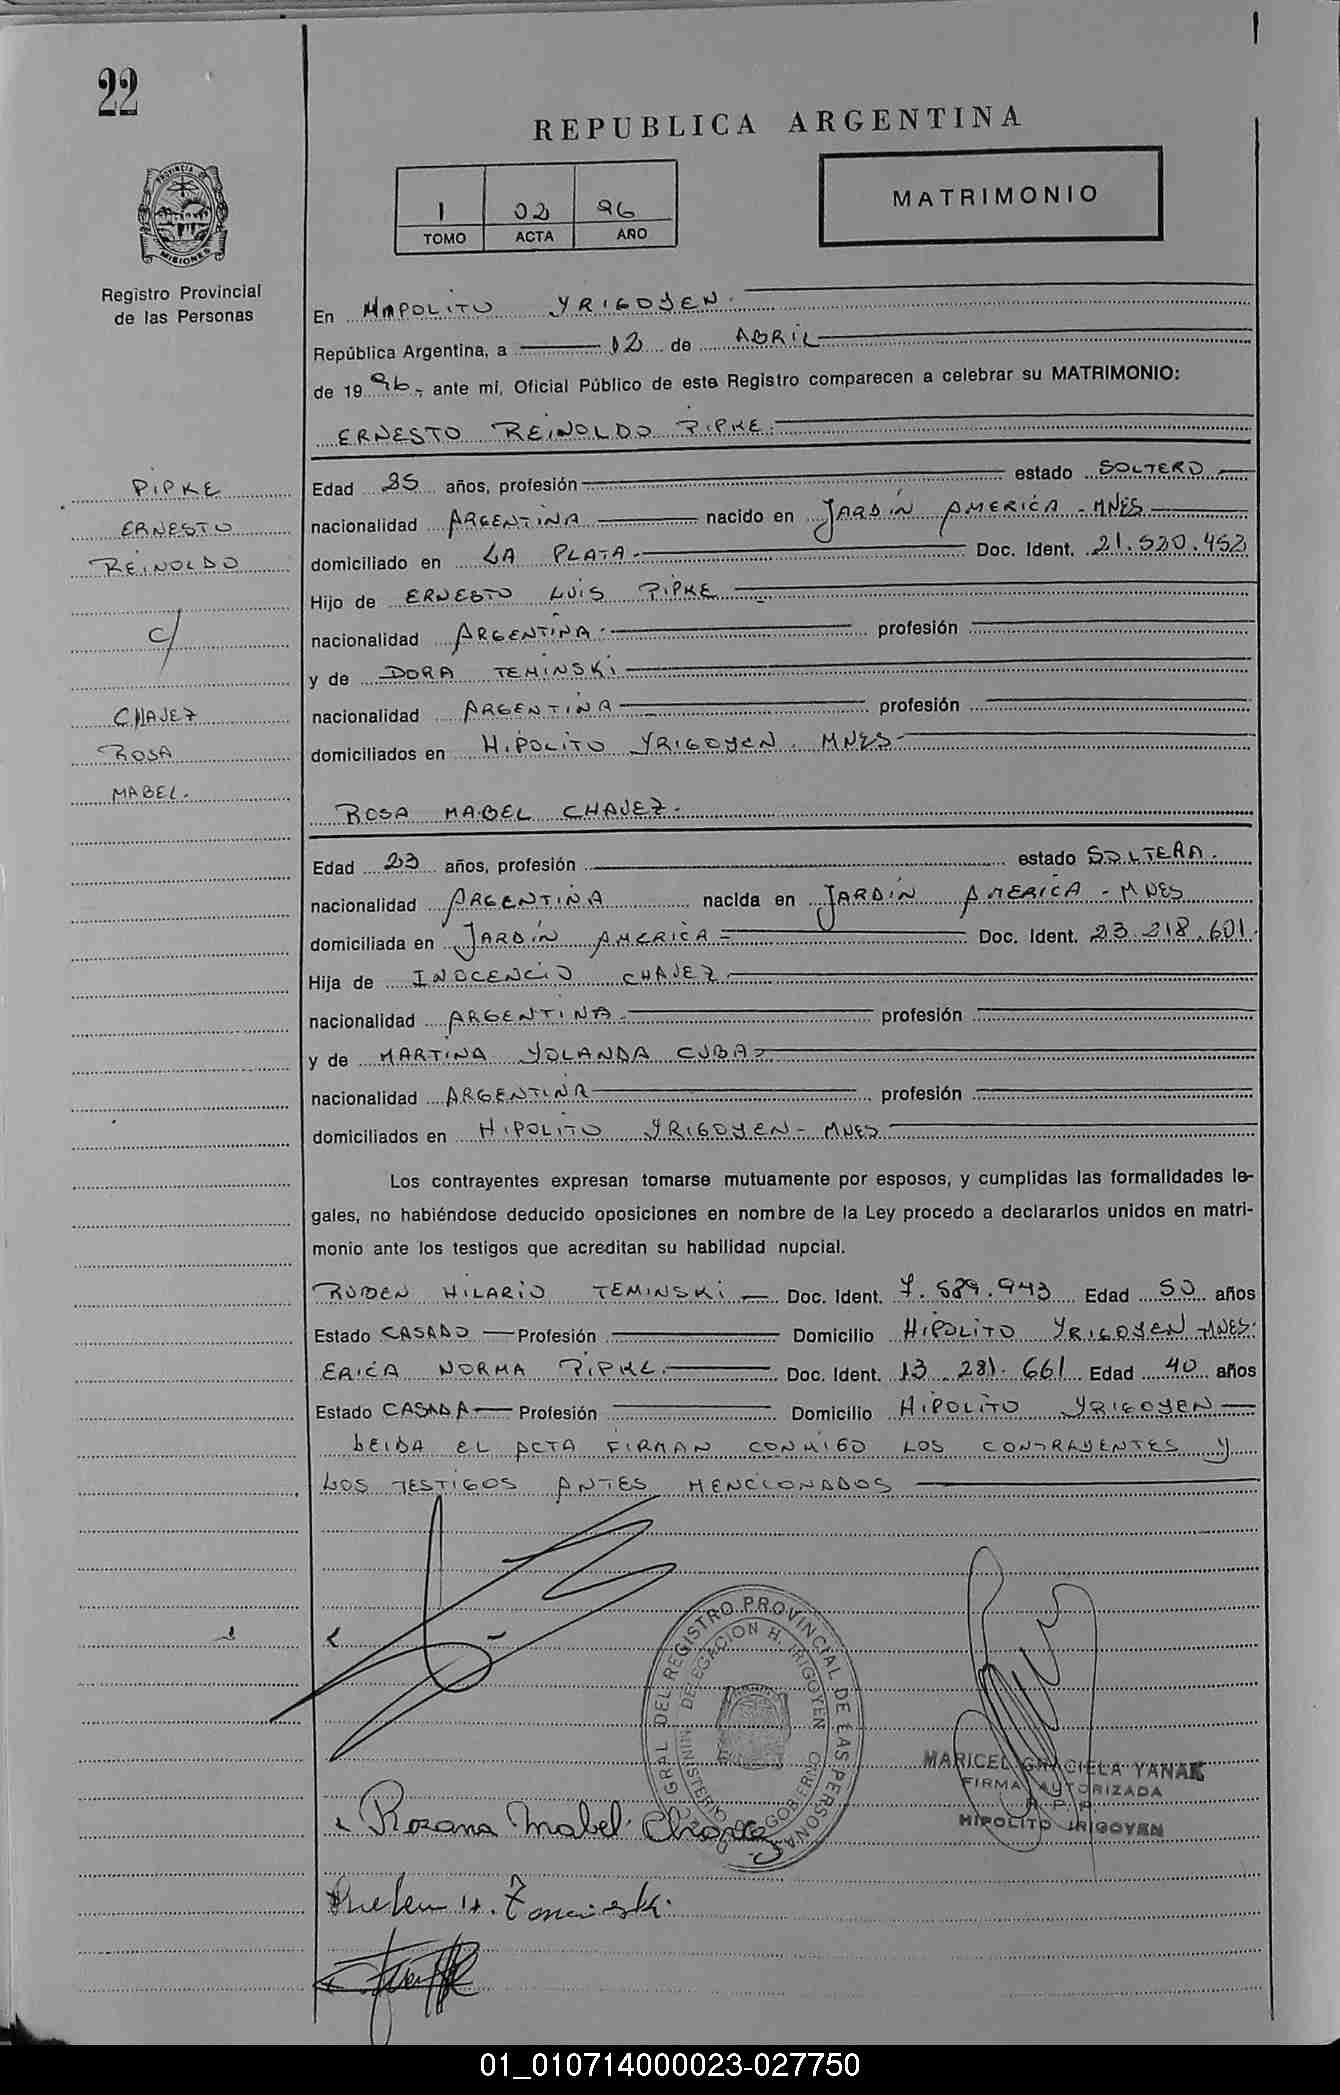 22
REPUBLICA ARGENTINA
1 02 96
TOMO ACTA AÑO
MATRIMONIO
PROVINCIA DE MISIONES
Registro Provincial
de las Personas
En HIPOLITO YRIGOYEN.
República Argentina, a 12 de ABRIL
de 19 96 ante mí, Oficial Público de este Registro comparecen a celebrar su MATRIMONIO:
ERNESTO REINOLDO PIPKE.
PIPKE
ERNESTO
REINOLDO
c/
CHAVEZ
ROSA
MABEL.
Edad 25 años, profesión estado SOLTERO
nacionalidad ARGENTINA nacido en JARDIN AMERICA - MNES
domiciliado en LA PLATA. Doc. Ident. 21.520.452
Hijo de ERNESTO LUIS PIPKE
nacionalidad ARGENTINA. profesión
y de DORA TEMINSKI
nacionalidad ARGENTINA profesión
domiciliados en HIPOLITO YRIGOYEN. MNES
ROSA MABEL CHAVEZ.
Edad 23 años, profesión estado SOLTERA.
nacionalidad ARGENTINA nacida en JARDIN AMERICA - MNES
domiciliada en JARDIN AMERICA Doc. Ident. 23.218.601.
Hija de INOCENCIO CHAVEZ
nacionalidad ARGENTINA. profesión
y de MARTINA YOLANDA CUBAS
nacionalidad ARGENTINA profesión
domiciliados en HIPOLITO YRIGOYEN - MNES
Los contrayentes expresan tomarse mutuamente por esposos, y cumplidas las formalidades le-
gales, no habiéndose deducido oposiciones en nombre de la Ley procedo a declararlos unidos en matri-
monio ante los testigos que acreditan su habilidad nupcial.
RUBEN HILARIO TEMINSKI Doc. Ident. 7.589.943 Edad 50 años
Estado CASADO Profesión Domicilio HIPOLITO YRIGOYEN MNES.
ERICA NORMA PIPKE. Doc. Ident. 13.281.661 Edad 40 años
Estado CASADA Profesión Domicilio HIPOLITO YRIGOYEN
LEIDA EL ACTA FIRMAN CONMIGO LOS CONTRAYENTES Y
LOS TESTIGOS ANTES MENCIONADOS
GRAL DEL REGISTRO PROVINCIAL DE LAS PERSONAS
DELEGACION H. IRIGOYEN
MINISTERIO GOBIERNO
MARICEL GRACIELA YANAK
FIRMA AUTORIZADA
R P P
HIPOLITO IRIGOYEN
Rosana Mabel Chavez
Ruben H. Teminski.
01_010714000023-027750